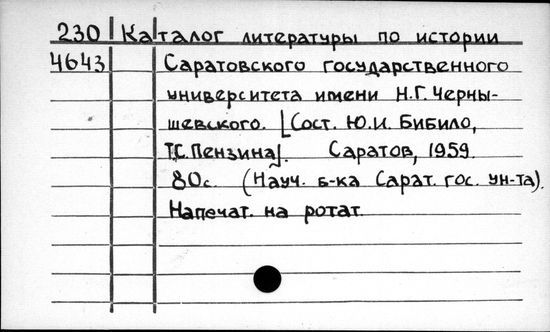 230 Каталог литературы по истории
4643 Саратовского государственного
университета имени Н.Г. Черны-
шевского. [Сост. Ю.И. Бибило,
Т.С. Пензина]. Саратов, 1959.
80с. (Науч. б-ка Сарат. гос. ун-та).
Напечат. на ротат.